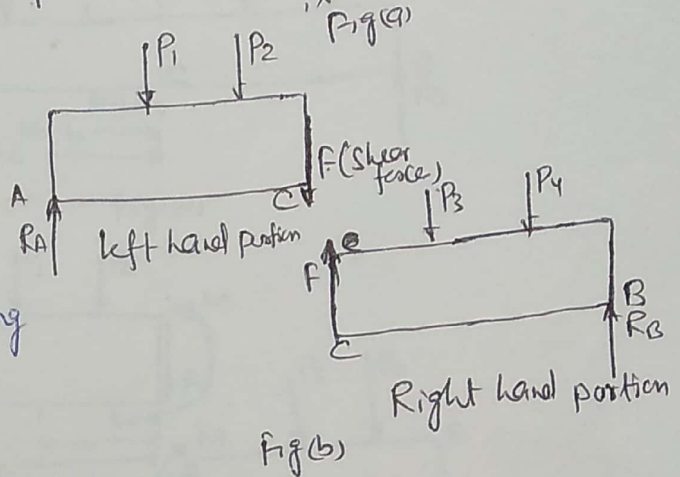 Fig(a)
P1 P2
F(Shear
force)
A
C
RA
left hand portion
P3 P4
F
C
B
RB
ng
Right hand portion
Fig(b)